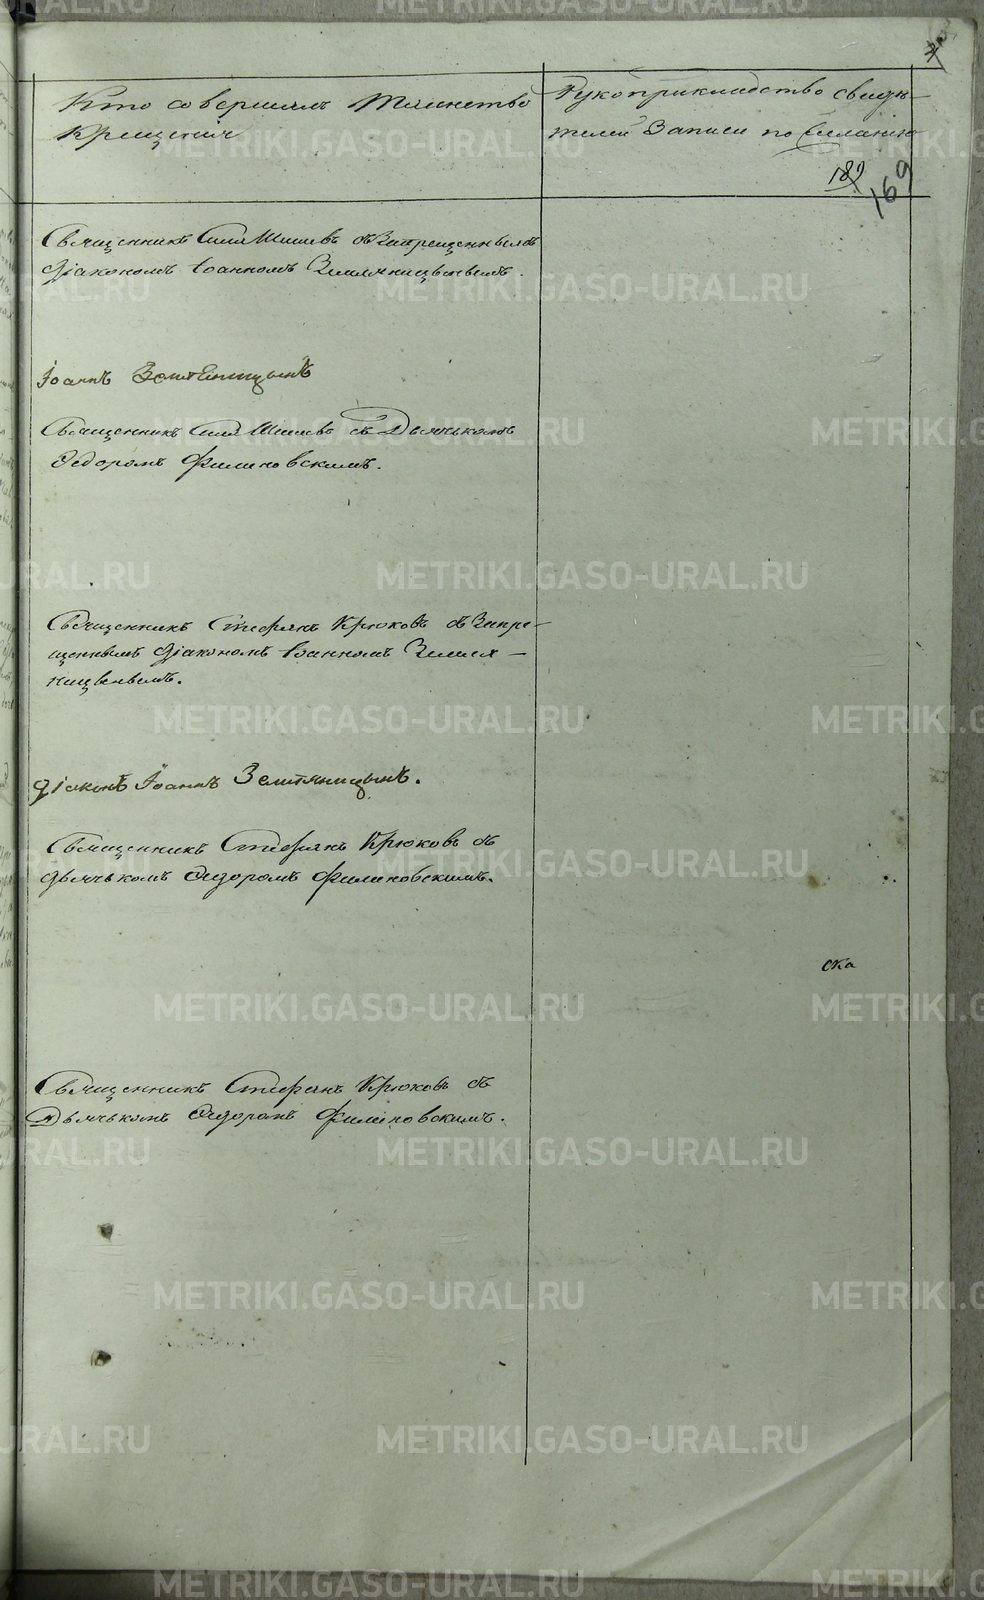 Кто совершалъ Таинство
Крещенія
Рукоприкладство свидѣ-
телей Записи по желанію
189
169
Священникъ Шишевъ съ Запрещеннымъ
діакономъ Іоанномъ Земляницынымъ.
Іоаннъ Земляницынъ
Священникъ Шишевъ съ Дьячькомъ
Ѳедоромъ Филиновскимъ.
Священникъ Стефанъ Крюковъ съ Запре-
щеннымъ діакономъ Іоанномъ Земля-
ницынымъ.
діаконъ Іоаннъ Земляницынъ.
Священникъ Стефанъ Крюковъ съ
дьячькомъ Ѳедоромъ Филиновскимъ.
ска
Священникъ Стефанъ Крюковъ съ
Дьячькомъ Ѳедоромъ Филиновскимъ.
METRIKI.GASO-URAL.RU